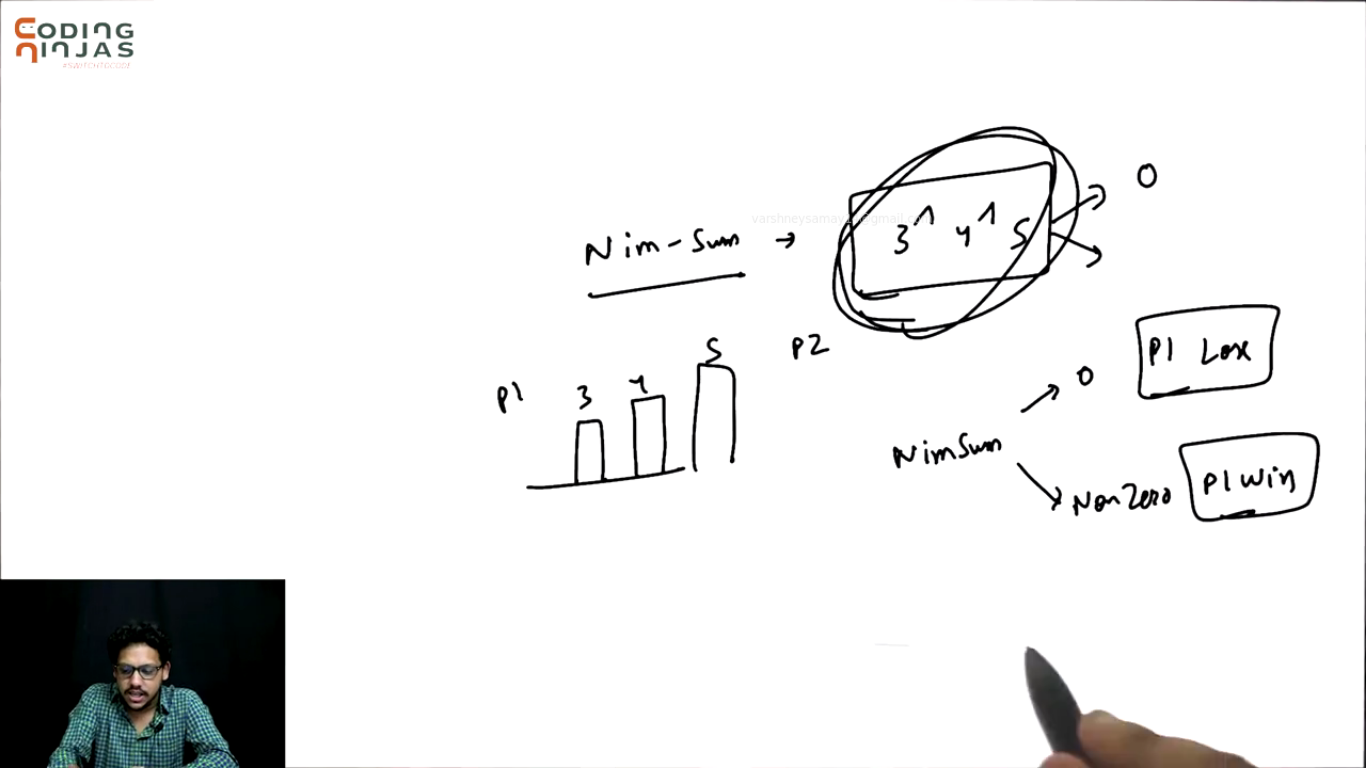 CODING
NINJAS
#SWITCHTOCODE
varshneysamay
@gmail.com
Nim-Sum → 3 ^ 4 ^ 5
0
P1
3 4 5
P2
NimSum
0
P1 Lose
NonZero
P1 Win